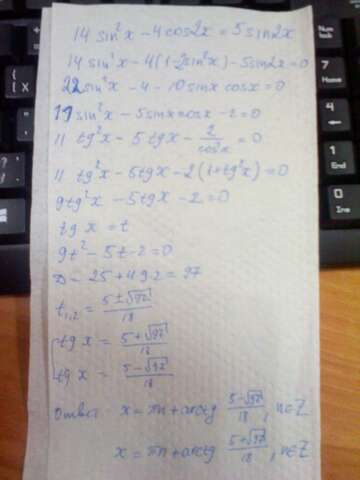 14 sin²x - 4 cos2x = 5 sin2x
14 sin²x - 4(1-2sin²x) - 5sin2x = 0
22sin²x - 4 - 10sinx cosx = 0
11sin²x - 5sinxcosx - 2 = 0
11 tg²x - 5tgx - 2/cos²x = 0
11 tg²x - 5tgx - 2(1+tg²x) = 0
9tg²x - 5tgx - 2 = 0
tg x = t
9t² - 5t - 2 = 0
D = 25 + 4·9·2 = 97
t₁,₂ = (5 ± √97)/18
tg x = (5 + √97)/18
tg x = (5 - √97)/18
Ответ: x = πn + arctg (5-√97)/18, n∈Z
x = πn + arctg (5+√97)/18, n∈Z
7
Home
4
1
End
0
Ins